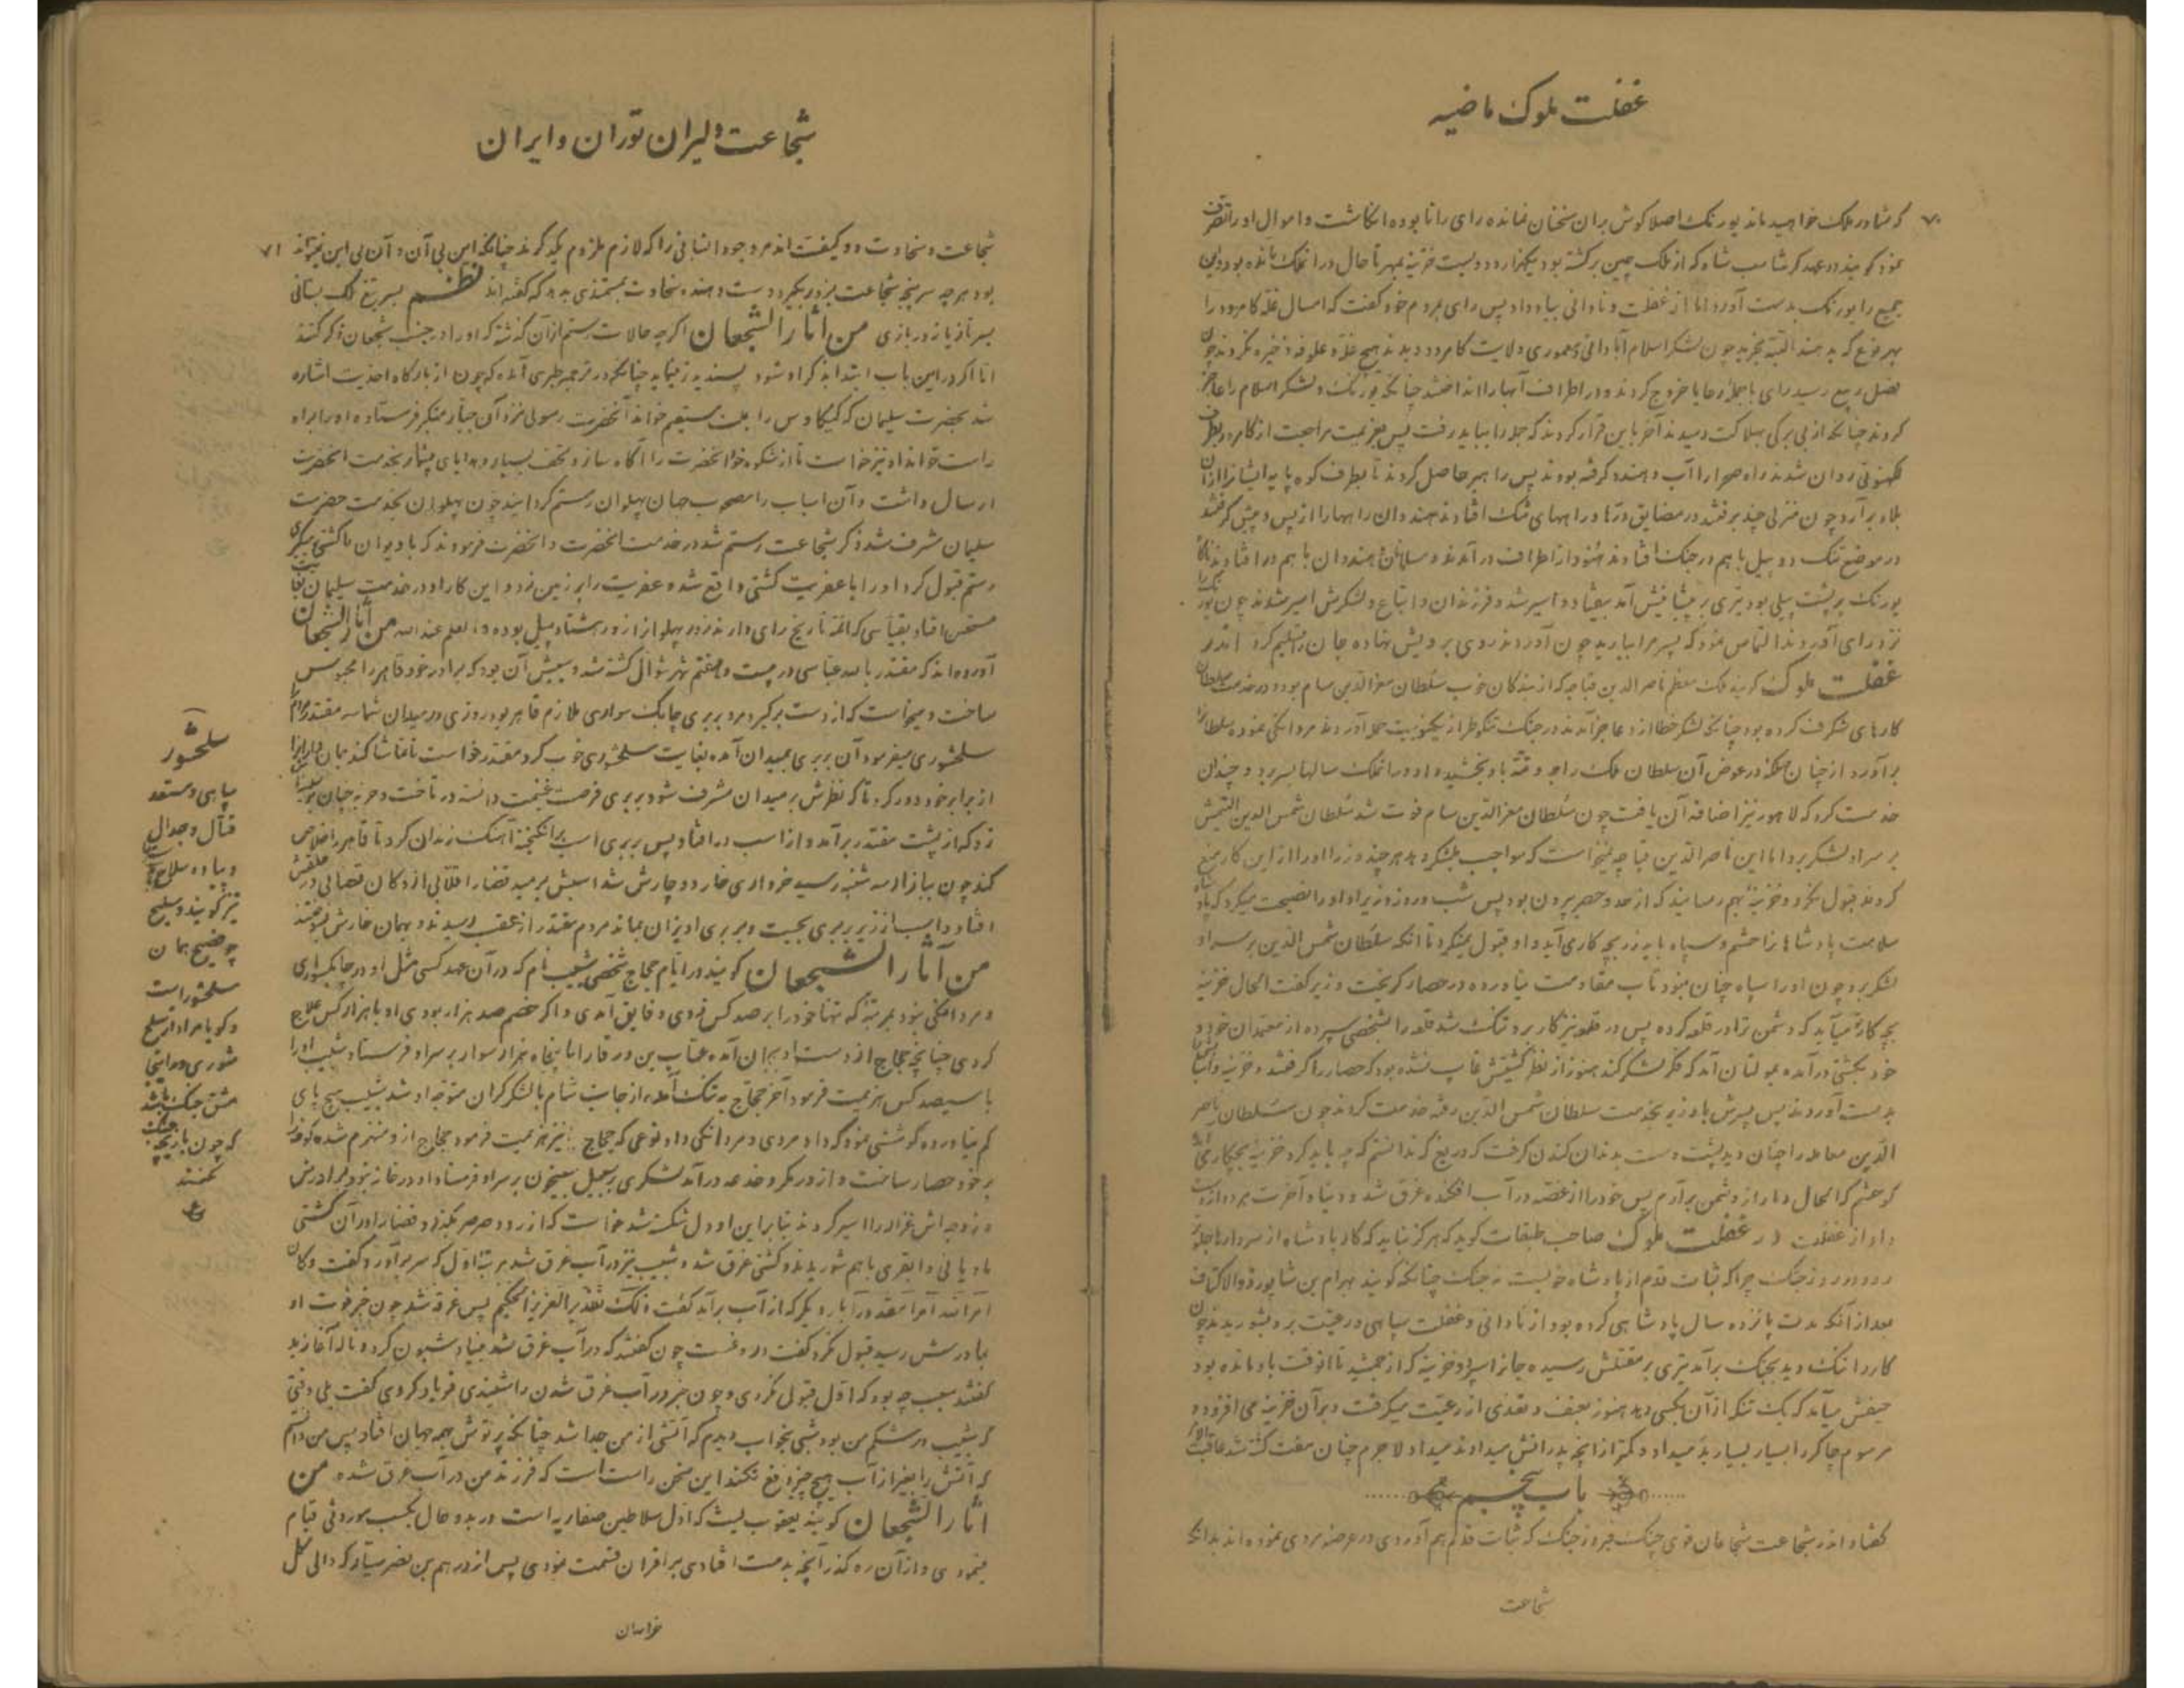 غفلت ملوک ماضیه
۷۰
کرشما در ملک خواهید ماند یورنک اصلا کوش بران سخنان نمانده رای را نابوده انکاشت و اموال او را تصرف
نمود کویند در عهد کرشاسب شاه که از ملک چین برکشته بود یکهزار و دویست خزینه بمهر تا حال در آن ملک مانده بود و این
جمیع را یورنک بدست آورد اما از غفلت و نادانی بباد داد پس رای بمردم خود کفت که امسال غله کامرود را
بهر نوع که بدهند البته بخرید چون لشکر اسلام آبادانی و معموری ولایت کامرود دیدند هیچ غله و علوفه ذخیره نکردند چون
فصل ربیع رسید رای با جمله رعایا خروج کردند و در اطراف آبها را انداختند چنانکه یورنک و لشکر اسلام را عاجز
کردند چنانکه از بی برکی بهلاکت رسیدند آخر باین قرار کردند که جلا را بباید رفت پس بعزیمت مراجعت از کامرود بطرف
لکهنوتی روان شدند راه صحرا را آب و هندو کرفته بودند پس راهبر حاصل کردند تا بطرف کوه پایه ایشانرا ازان
بلاد برآرد چون منزلی چند برفتند در مضایق درها و راههای تنک افتادند هندوان راهها را از پس و پیش کرفتند
در موضع تنک دو پیل باهم در جنک افتادند هنود از اطراف در آمدند و مسلمانان هندوان باهم در افتادند
یورنک بر پشت پیلی بود تیری بر پیشانیش آمد بیفتاد و اسیر شد و فرزندان و اتباع و لشکرش اسیر شدند چون یورنک را
نزد رای آوردند التماس نمود که پسر مرا بیارید چون آوردند روی بر رویش نهاده جان بتسلیم کرد اندر
غفلت ملوک کویند ملک معظم ناصر الدین قباچه که از بندکان خوب سلطان معز الدین سام بود و در خدمت سلطان
کارهای شکرف کرده بود چنانکه لشکر خطا از و عاجز آمدند در جنک
برآورد از چنان مهلکه در عوض آن سلطان ملک راجه و تته باو بخشید و او در آن ملک سالها بسر برد و چندان
خدمت کرد که لاهور نیز اضافه آن یافت چون سلطان معز الدین سام فوت شد سلطان شمس الدین التیمش
بر سر او لشکر برد اما این ناصر الدین قباچه نمیخواست که مواجب بلشکر دهد هر چند وزرا او را از این کار منع
کردند قبول نکرد و خزینه بهم رسانید که از حد و حصر بیرون بود پس شب و روز وزیر او او را نصیحت میکرد که پادشاه
سلامت پادشاهانرا حشم و سپاه باید زر بچه کاری آید او قبول نمیکرد تا آنکه سلطان شمس الدین بر سر او
لشکر برد چون او را سپاه چنان نبود تاب مقاومت نیاورده در حصار کریخت وزیر کفت الحال خزینه
بچه کار تو میآید که دشمن ترا در قلعه کرده پس در قلعه نیز کار برو تنک شد قلعه را بشخصی سپرده از معتمدان خود و
خود بکشتی درآمده بمولتان آمد که فکر لشکر کند هنوز از نظر کشتیش غایب نشده بود که حصار را کرفتند و خزینه و اتباع
بدست آوردند پس پسرش با وزیر بخدمت سلطان شمس الدین رفته خدمت کردند چون سلطان ناصر
الدین معامله را چنان دید پشت دست بدندان کندن کرفت که دریغ که ندانستم که چه باید کرد خزینه بچکار آید
کو حشم که الحال دمار از دشمن برآرم پس خود را از غصه در آب افکنده غرق شد و دنیا و آخرت هر دو از دست
داد از غفلت در غفلت ملوک صاحب طبقات کوید که هرکز نباید که کار پادشاه از سردار
رود در روز جنک چرا که ثبات قدم از پادشاه خوبست نه جنک چنانکه کویند بهرام بن شاپور ذوالاکتاف
بعد از آنکه مدت پانزده سال پادشاهی کرده بود از نادانی و غفلت سپاهی و رعیت برو بشوریدند چون
کار را تنک دید بجنک برآمد تیری بر مقتلش رسیده جانرا سپرد و خزینه که از جمشید تا آنوقت باو مانده بود
حیفش میآمد که یک تنکه از آن بکسی دهد هنوز بعنف و تعدی از رعیت میکرفت و بر آن خزینه می افزود و
مرسوم چاکر را بسیار بسیار بد میداد و کمتر از آنچه پدرانش میدادند میداد لاجرم چنان مفت کشته شد
باب پنجم
کفتار اندر شجاعت شجاعان قوی چنک فیروز جنک که ثبات قدم بهم آوردی در عرصه مردی نموده اند بدانکه
شجاعت
شجاعت دلیران توران و ایران
۷۱
شجاعت و سخاوت دو کیفیت اند مر وجود انسانی را که لازم ملزوم یکدیکرند چنانکه این بی آن و آن بی این نتواند
بود هر چه سرپنجه شجاعت بزور بکیرد دست دهنده سخاوت بمستمندی بدهد که کفته اند نظم بسر تیغ ملک بستانی
بسر تازیانه در بازی من آثار الشجعان اکرچه حالات رستم از آن کذشته که او را در جنب شجعان ذکر کنند
اما اکر در این باب ابتدا بذکر او شود پسندیده تر نماید چنانکه در ترجمه طبری آمده که چون از بارکاه احدیت اشاره
شد بحضرت سلیمان که کیکاوس را بملت مستقیم خواند آنحضرت رسولی نزد آن جبار متکبر فرستاده او را براه
راست خواند او نیز خواست تا از شکوه خود آنحضرت را آکاه سازد تحف بسیار و هدایای بیشمار بخدمت آنحضرت
ارسال داشت و آن اسباب را مصحوب جهان پهلوان رستم کردانید چون پهلوان بخدمت حضرت
سلیمان مشرف شد ذکر شجاعت رستم شد در خدمت آنحضرت و آنحضرت فرمودند که با دیوان ما کشتی میکیری
رستم قبول کرد او را با عفریت کشتی واقع شده عفریت را بر زمین زد و این کار او در خدمت سلیمان بغایت
مستحسن افتاد بقیاسی که ائمه تاریخ رای دارند زور پهلوان از زور هشتاد پیل بوده و العلم عند الله من آثار الشجعان
آورده اند که مقتدر بالله عباسی در بیست و هفتم شهر شوال کشته شد و سببش آن بود که برادر خود قاهر را محبوس
ساخت و میخواست که از دست برکیرد مرد بربری چابک سواری ملازم قاهر بود روزی در میدان شماسه مقتدر
سلحشوری میفرمود آن بربری بمیدان آمده بغایت سلحشوری خوب کرد مقتدر خواست تا تماشا کند
از برابر خود دور کرد تا که نظرش بر میدان مشرف شود بربری فرصت غنیمت دانسته در تاخت و حربه چنان
زد که از پشت مقتدر برآمد و از اسب در افتاد پس بربری اسب برانکیخته آهنک زندان کرد تا قاهر را خلاص
کند چون ببازار سه شنبه رسید خرواری خار دو چارش شد اسبش برمید قضا را قلابی از دکان قصابی در حلقش
افتاد و اسب از زیر بربری بجست و بربری آویزان بماند مردم مقتدر از عقب رسیدند و بهمان خارش بسوختند
من آثار الشجعان کویند در ایام حجاج شخصی شبیب نام که در آن عهد کسی مثل او در چابکسواری
و مردانکی نبود بمرتبه که تنها خود را بر صد کس زدی و فایق آمدی و اکر خصم صد هزار بودی او با هزار کس علاج
کردی چنانچه حجاج از دست او بجان آمده عتاب بن ورقا را با پنجاه هزار سوار بر سر او فرستاد شبیب او را
با سیصد کس هزیمت فرمود آخر حجاج به تنک آمده از جانب شام با لشکر کران متوجه او شد شبیب هیچ پای
کم نیاورده کوششی نمود که داد مردی و مردانکی داد نوعی که حجاج نیز هزیمت فرمود حجاج از و منهزم شده کوفه را
بر خود حصار ساخت و از در مکر و خدعه درآمد لشکری بر سبیل شبیخون بر سر او فرستاد او در خانه نبود برادرش
و زوجه اش غزاله را اسیر کردند بنابراین او دل شکسته شد خواست که از رود صرصر بکذرد قضا را در آن کشتی
مادیانی و ابقری باهم شوریدند و کشتی غرق شد و شبیب نیز در آب غرق شد مرتبه اول که سر برآورد کفت و کان
امر الله امرا مقدورا بار دیکر که از آب برآمد کفت ذلک تقدیر العزیز الحکیم پس غرق شد چون خبر فوت او
بمادرش رسید قبول نکرد کفت دروغست چون کفتند که در آب غرق شد بنیاد شیون کرد و ناله آغازید
کفتند سبب چه بود که اول قبول نکردی و چون خبر در آب غرق شدن را شنیدی فریاد کردی کفت بلی وقتی
که شبیب در شکم من بود شبی بخواب دیدم که آتشی از من جدا شد چنانکه پرتوش بهمه جهان افتاد پس من دانم
که آتش را بغیر از آب هیچ چیز دفع نکند این سخن راست است که فرزند من در آب غرق شده من
آثار الشجعان کویند یعقوب لیث که اول سلاطین صفاریه است در بدو حال بکسب موروثی قیام
مینمودی و از آن ره کذر آنچه بدست افتادی بر اقران قسمت نمودی پس از در هم بن نصر سیار که والی کل
خراسان
سلحشور
سپاهی و مستعد
قتال و جدال
و بیاده سلاح
نیز کویند و سلیح
چو ضیح همان
سلحشور است
و کویا مراد از سلح
شوری در اینجا
مشق جنک باشد
که چون بازیچه
کنند